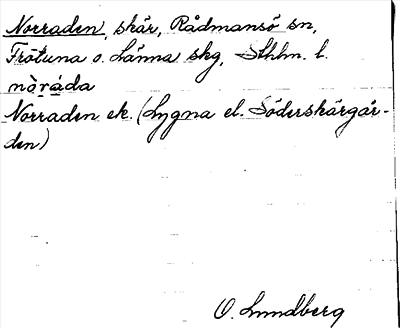 Norraden, skär, Rådmansö sn,
Frötuna o. Länna skg, Sthlm. l.
nòráda
Norraden ek. (Lygna el. Söderskärgår-
den)
O. Lundberg